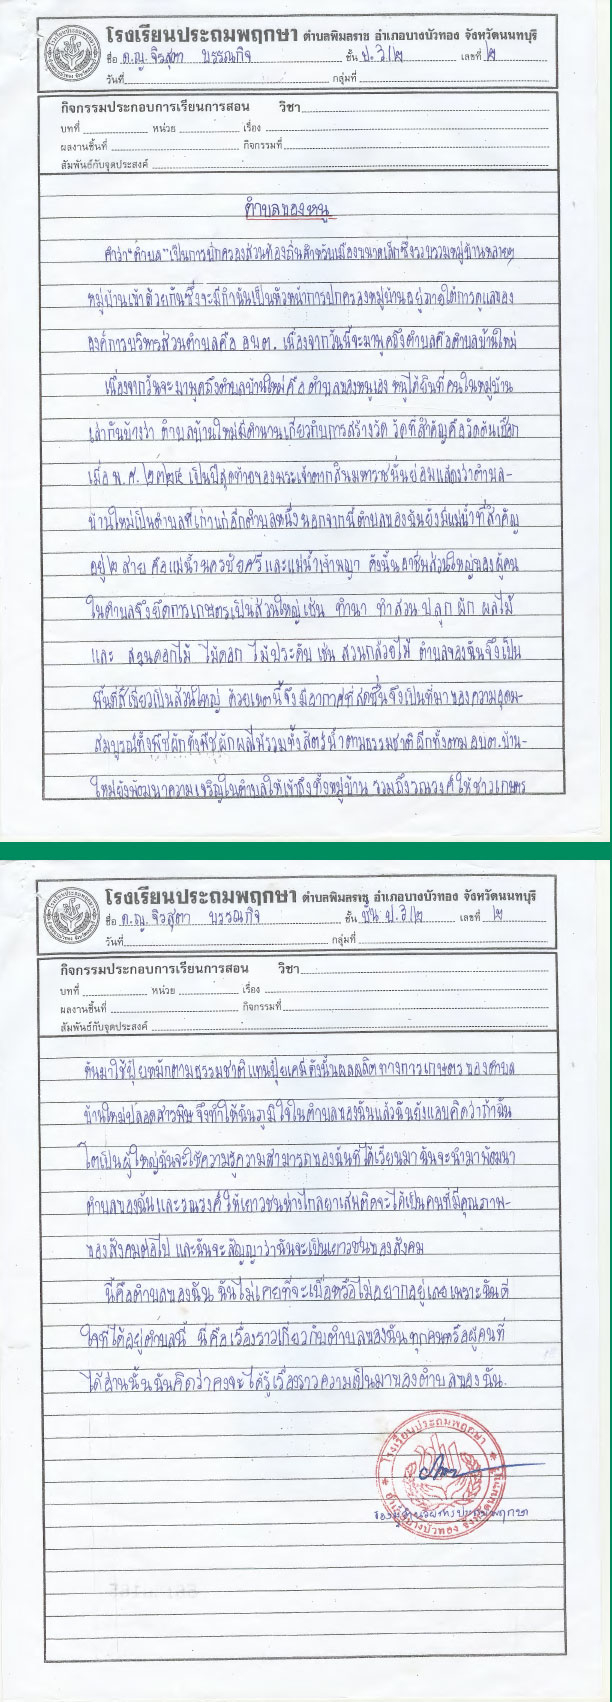 โรงเรียนประถมพฤกษา ตำบลพิมลราช อำเภอบางบัวทอง จังหวัดนนทบุรี
ชื่อ ด.ญ. จิรสุตา บรรณกิจ ชั้น ป.๓/๒ เลขที่ ๒
วันที่ กลุ่มที่
กิจกรรมประกอบการเรียนการสอน วิชา
บทที่ หน่วย เรื่อง
ผลงานชิ้นที่ กิจกรรมที่
สัมพันธ์กับจุดประสงค์
ตำบลของหนู
คำว่า "ตำบล" เป็นการปกครองส่วนท้องถิ่นสำหรับเมืองขนาดเล็กซึ่งรวบรวมหมู่บ้านหลายๆ
หมู่บ้านเข้าด้วยกันซึ่งจะมีกำนันเป็นหัวหน้าการปกครองหมู่บ้านอยู่ภายใต้การดูแลของ
องค์การบริหารส่วนตำบลคือ อบต. เนื่องจากวันนี้จะมาพูดถึงตำบลคือตำบลบ้านใหม่
เนื่องจากวันจะมาพูดถึงตำบลบ้านใหม่คือ ตำบลของหนูเอง หนูได้ยินที่คนในหมู่บ้าน
เล่ากันบ้างว่า ตำบลบ้านใหม่มีตำนานเกี่ยวกับการสร้างวัด วัดที่สำคัญคือวัดต้นเชือก
เมื่อ พ.ศ. ๒๓๒๕ เป็นปีสุดท้ายของพระเจ้าตากสินมหาราชนั่นย่อมแสดงว่าตำบล-
บ้านใหม่เป็นตำบลที่เก่าแก่อีกตำบลหนึ่ง นอกจากนี้ตำบลของฉันยังมีแม่น้ำที่สำคัญ
อยู่ ๒ สาย คือแม่น้ำนครชัยศรี และแม่น้ำเจ้าพญา ดังนั้นอาชีพส่วนใหญ่ของผู้คน
ในตำบลจึงยึดการเกษตรเป็นส่วนใหญ่ เช่น ทำนา ทำสวน ปลูก ผัก ผลไม้
และ สวนดอกไม้ ไม้ดอก ไม้ประดับ เช่น สวนกล้วยไม้ ตำบลของฉันจึงเป็น
พื้นที่สีเขียวเป็นส่วนใหญ่ ด้วยเหตุนี้จึงมีอากาศที่สดชื่นจึงเป็นที่มาของความอุดม-
สมบูรณ์ทั้งพืชผักทั้งพืชผักผลไม้รวมทั้งสัตว์น้ำตามธรรมชาติ อีกทั้งตาม อบต.บ้าน-
ใหม่ยังพัฒนาความเจริญในตำบลให้เข้าถึงทั้งหมู่บ้าน รวมถึงรณรงค์ให้ชาวเกษตร
โรงเรียนประถมพฤกษา ตำบลพิมลราช อำเภอบางบัวทอง จังหวัดนนทบุรี
ชื่อ ด.ญ. จิรสุตา บรรณกิจ ชั้น ชั้น ป.๓/๒ เลขที่ ๒
วันที่ กลุ่มที่
กิจกรรมประกอบการเรียนการสอน วิชา
บทที่ หน่วย เรื่อง
ผลงานชิ้นที่ กิจกรรมที่
สัมพันธ์กับจุดประสงค์
หันมาใช้ปุ๋ยหมักตามธรรมชาติ แทนปุ๋ยเคมี ดังนั้นผลผลิตทางการเกษตรของตำบล
บ้านใหม่ปลอดสารพิษ จึงทำให้ฉันภูมิใจในตำบลของฉันแล้วฉันยังแอบคิดว่าถ้าฉัน
โตเป็นผู้ใหญ่ฉันจะใช้ความรู้ความสามารถของฉันที่ได้เรียนมา ฉันจะนำมาพัฒนา
ตำบลของฉัน และรณรงค์ ให้เยาวชนห่างไกลยาเสพติดจะได้เป็นคนที่มีคุณภาพ-
ของสังคมต่อไป และฉันจะสัญญาว่าฉันจะเป็นเยาวชนของสังคม
นี่คือตำบลของฉัน ฉันไม่เคยที่จะเบื่อหรือไม่อยากอยู่เลย เพราะฉันดี
ใจที่ได้อยู่ตำบลนี้ นี่คือเรื่องราวเกี่ยวกับตำบลของฉัน ทุกคนหรือผู้คนที่
ได้อ่านนั้น ฉันคิดว่าคงจะได้รู้เรื่องราวความเป็นมาของตำบลของฉัน.
โรงเรียนประถมพฤกษา
อำเภอบางบัวทอง จังหวัดนนทบุรี